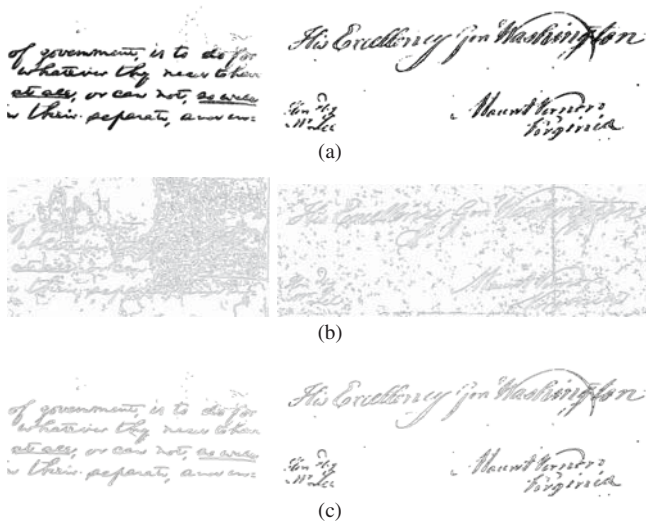 of government, is to do for
whatever they need to have
at all, or can not, so well
in their separate, and in
His Excellency Gen Washington
Mount Vernon
Virginia
(a)
His Excellency Gen Washington
Mount Vernon
Virginia
(b)
of government, is to do for
whatever they need to have
at all, or can not, so well
in their separate, and in
His Excellency Gen Washington
Mount Vernon
Virginia
(c)